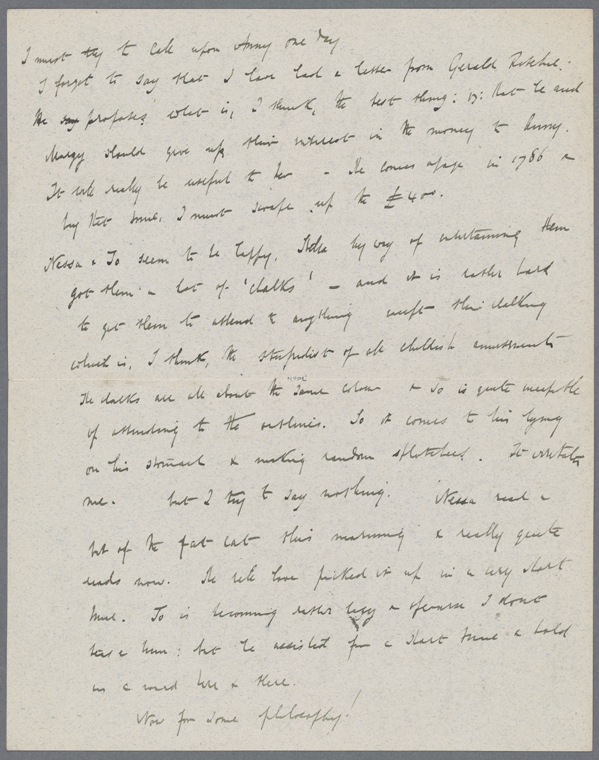 I must try to call upon Anny one day
I forgot to say that I have had a letter from Gerald Ritchie.
He proposes what is, I think, the best thing: viz: that he and
Margy should give up their interest in the money to Anny.
It will really be useful to her - He comes in 1786 &
by that time, I must scrape up the £400.
Nessa & To seem to be happy. Stella by way of entertaining them
got them a lot of 'chalks' - and it is rather hard
to get them to attend to anything except their chalking
which is, I think, the stupidist of all childish amusements
The chalks are all about the same colour & To is quite incapable
of attending to the outlines. So it comes to his lying
on his stomach & making random splotches. It irritates
me. but I try to say nothing. Nessa read a
bit of the fat cat this morning & really quite
reads now. She will have picked it up in a very short
time. To is becoming rather lazy & of course I dont
tease him: but he assisted for a short time & told
us a word here & there.
Now for some philosophy!